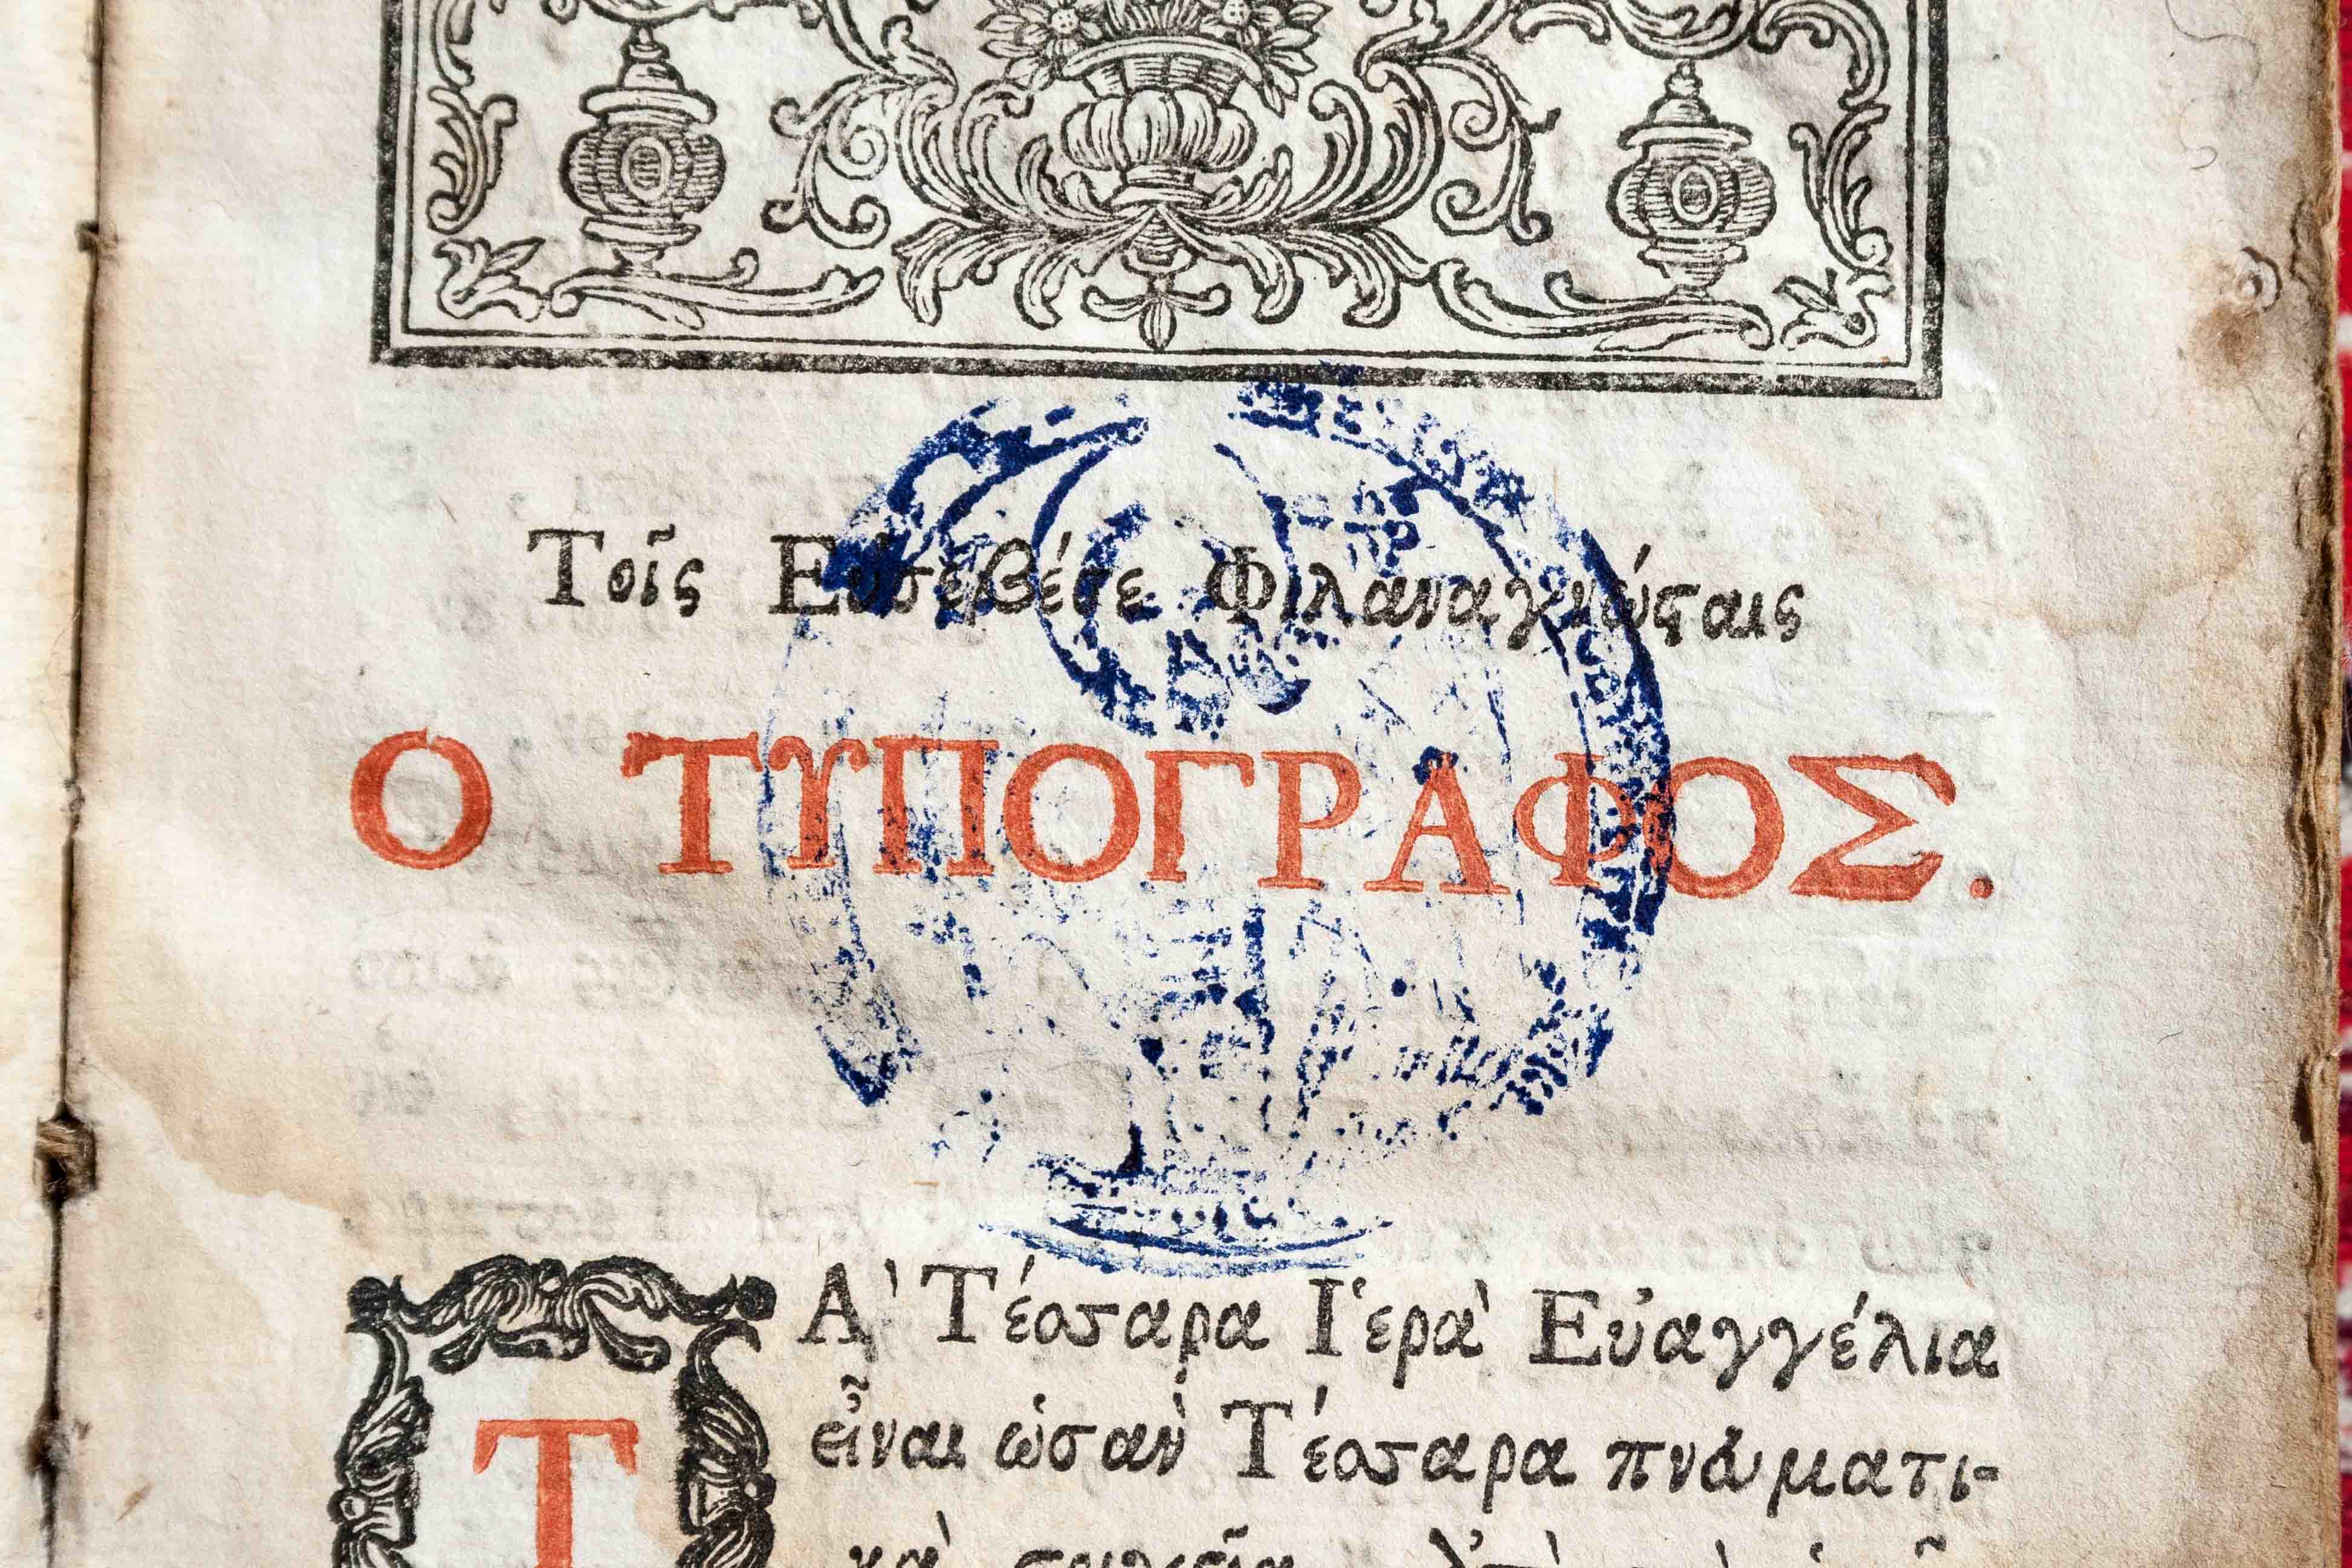 Τοῖς Εὐσεβέσι Φιλαναγνώϛαις
Ο ΤΥΠΟΓΡΑΦΟΣ.
ΤᾺ Τέσσαρα Ἱερὰ Εὐαγγέλια
εἶναι ὡσὰν Τέσσαρα πνευματι-
κὰ